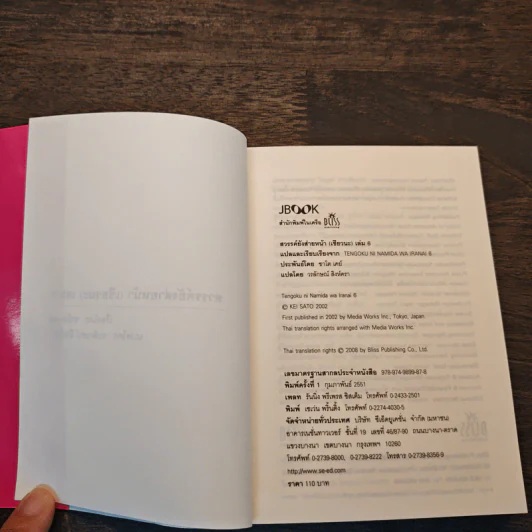 JBOOK
สำนักพิมพ์ในเครือ BLISS
สวรรค์ยังส่ายหน้า (เซียวนะ) เล่ม 6
แปลและเรียบเรียงจาก TENGOKU NI NAMIDA WA IRANAI 6
ประพันธ์โดย ซาโต เคย์
แปลโดย วรลักษณ์ สิงหัดรา
Tengoku ni Namida wa Iranai 6
© KEI SATO 2002
First published in 2002 by Media Works Inc., Tokyo, Japan.
Thai translation rights arranged with Media Works Inc.
Thai translation rights © 2008 by Bliss Publishing Co., Ltd.
เลขมาตรฐานสากลประจำหนังสือ 978-974-9899-87-8
พิมพ์ครั้งที่ 1 กุมภาพันธ์ 2551
เพลท รันนิ่ง พรีเพรส ซิสเต็ม โทรศัพท์ 0-2433-2501
พิมพ์ เซเว่น พริ้นติ้ง โทรศัพท์ 0-2274-4030-5
จัดจำหน่ายทั่วประเทศ บริษัท ซีเอ็ดยูเคชั่น จำกัด (มหาชน)
อาคารเนชั่นทาวเวอร์ ชั้นที่ 19 เลขที่ 46/87-90 ถนนบางนา-ตราด
แขวงบางนา เขตบางนา กรุงเทพฯ 10260
โทรศัพท์ 0-2739-8000, 0-2739-8222 โทรสาร 0-2739-8356-9
http://www.se-ed.com
ราคา 110 บาท